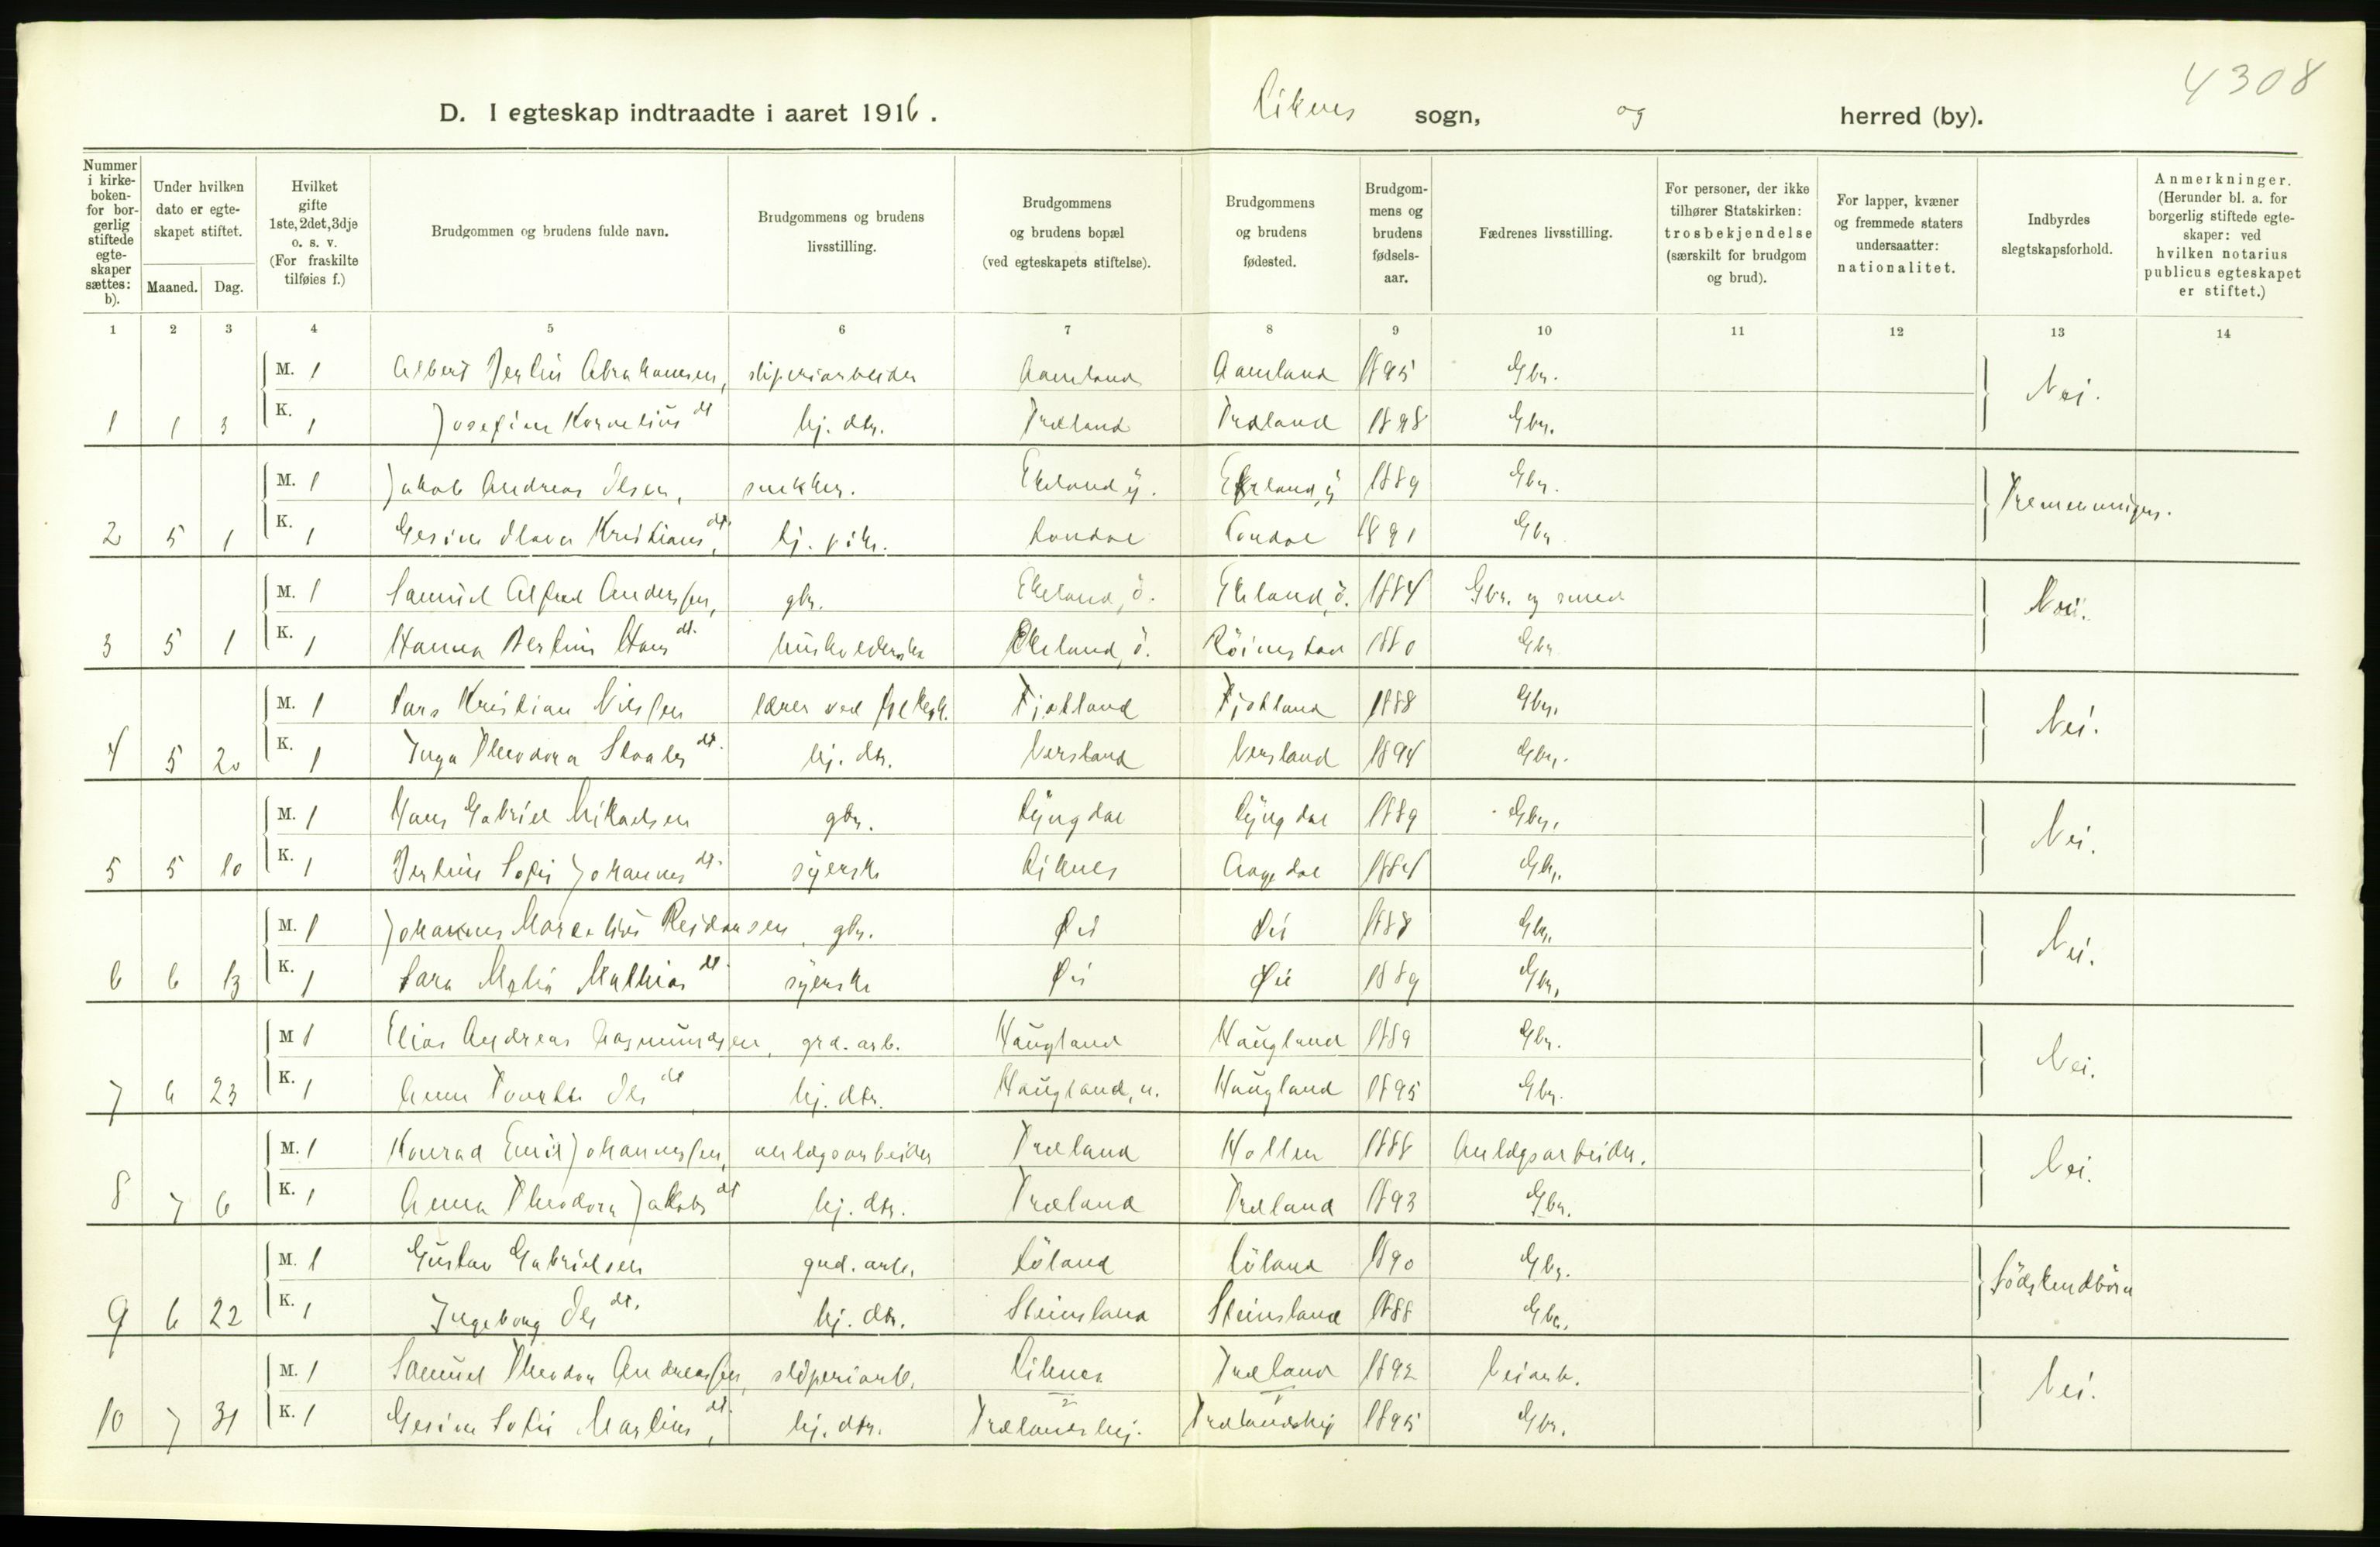 4308
D. I egteskap indtraadte i aaret 1916. Liknes sogn, og herred (by).
Nummer i kirkeboken- for borgerlig stiftede egteskaper sættes: b). Under hvilken dato er egteskapet stiftet. Maaned. Dag. Hvilket gifte 1ste, 2det, 3dje o. s. v. (For fraskilte tilføies f.) Brudgommen og brudens fulde navn. Brudgommens og brudens livsstilling. Brudgommens og brudens bopæl (ved egteskapets stiftelse). Brudgommens og brudens fødested. Brudgommens og brudens fødselsaar. Fædrenes livsstilling. For personer, der ikke tilhører Statskirken: trosbekjendelse (særskilt for brudgom og brud). For lapper, kvæner og fremmede staters undersaatter: nationalitet. Indbyrdes slegtskapsforhold. Anmerkninger. (Herunder bl. a. for borgerlig stiftede egteskaper: ved hvilken notarius publicus egteskapet er stiftet.)
1 2 3 4 5 6 7 8 9 10 11 12 13 14
M. 1 Albert Berlin Abrahamsen, sliperiarbeider Aamland Aamland 1895 Gbr. Nei.
1 1 3 K. 1 Josefine Kornelius dt hj. dtr. Træland Træland 1898 Gbr.
M. 1 Jakob Andreas Olsen, snekker. Ekeland, y. Ekeland, y 1889 Gbr. Tremenninger.
2 5 1 K. 1 Gesine Olava Kristians dt., hj. Londal Londal 1891 Gbr
M. 1 Samuel Alfred Anderssen, gbr. Ekeland, ö. Ekeland, ö. 1884 Gbr. og smed Nei.
3 5 1 K. 1 Hanna Bertine Hans dt. husholderske Ekeland, ö. Röinestad 1880 Gbr
M. 1 Lars Kristian Nilssen lærer ved folkesk. Fjotland Fjotland 1888 Gbr. Nei.
4 5 20 K. 1 Inga Theodora Staales dt. hj. dtr. Versland Versland 1894 Gbr.
M. 1 Hans Gabriel Mikaelsen gbr. Lyngdal Lyngdal 1889 Gbr. Nei.
5 5 10 K. 1 Bertine Sofie Johannes dt. syerske Liknes Aagedal 1884 Gbr.
M. 1 Johannes Marcelius Reidarsen, gbr. Øie Øie 1888 Gbr. Nei.
6 6 13 K. 1 Sara Malia Mathias dt. syerske Øie Øie 1889 Gbr.
M 1 Elias Andreas Aasmundsen, grd. arb. Haugland Haugland 1889 Gbr. Nei.
7 6 23 K. 1 Anne Tovette Ols dt hj. dtr. Haugland, n. Haugland 1895 Gbr.
M. 1 Konrad Emil Johannessen, anlægsarbeider Træland Hollen 1888 Anlægsarbeider. Nei.
8 7 6 K. 1 Anna Theodora Jakobs dt hj. dtr. Træland Træland 1893 Gbr.
M. 1 Gustav Gabrielsen grd. arb. Löland Löland 1890 Gbr. Södskendbörn
9 6 22 K. 1 Ingeborg Ols dt. hj. dtr. Steinsland Steinsland 1888 Gbr.
M. 1 Samuel Theodor Andreassen, sliperiarb. Liknes Træland 1892 Veiarb. Nei.
10 7 31 K. 1 Gesine Sofie Martins dt., hj. dtr. Trælandshej. Trælandshej 1895 Gbr.